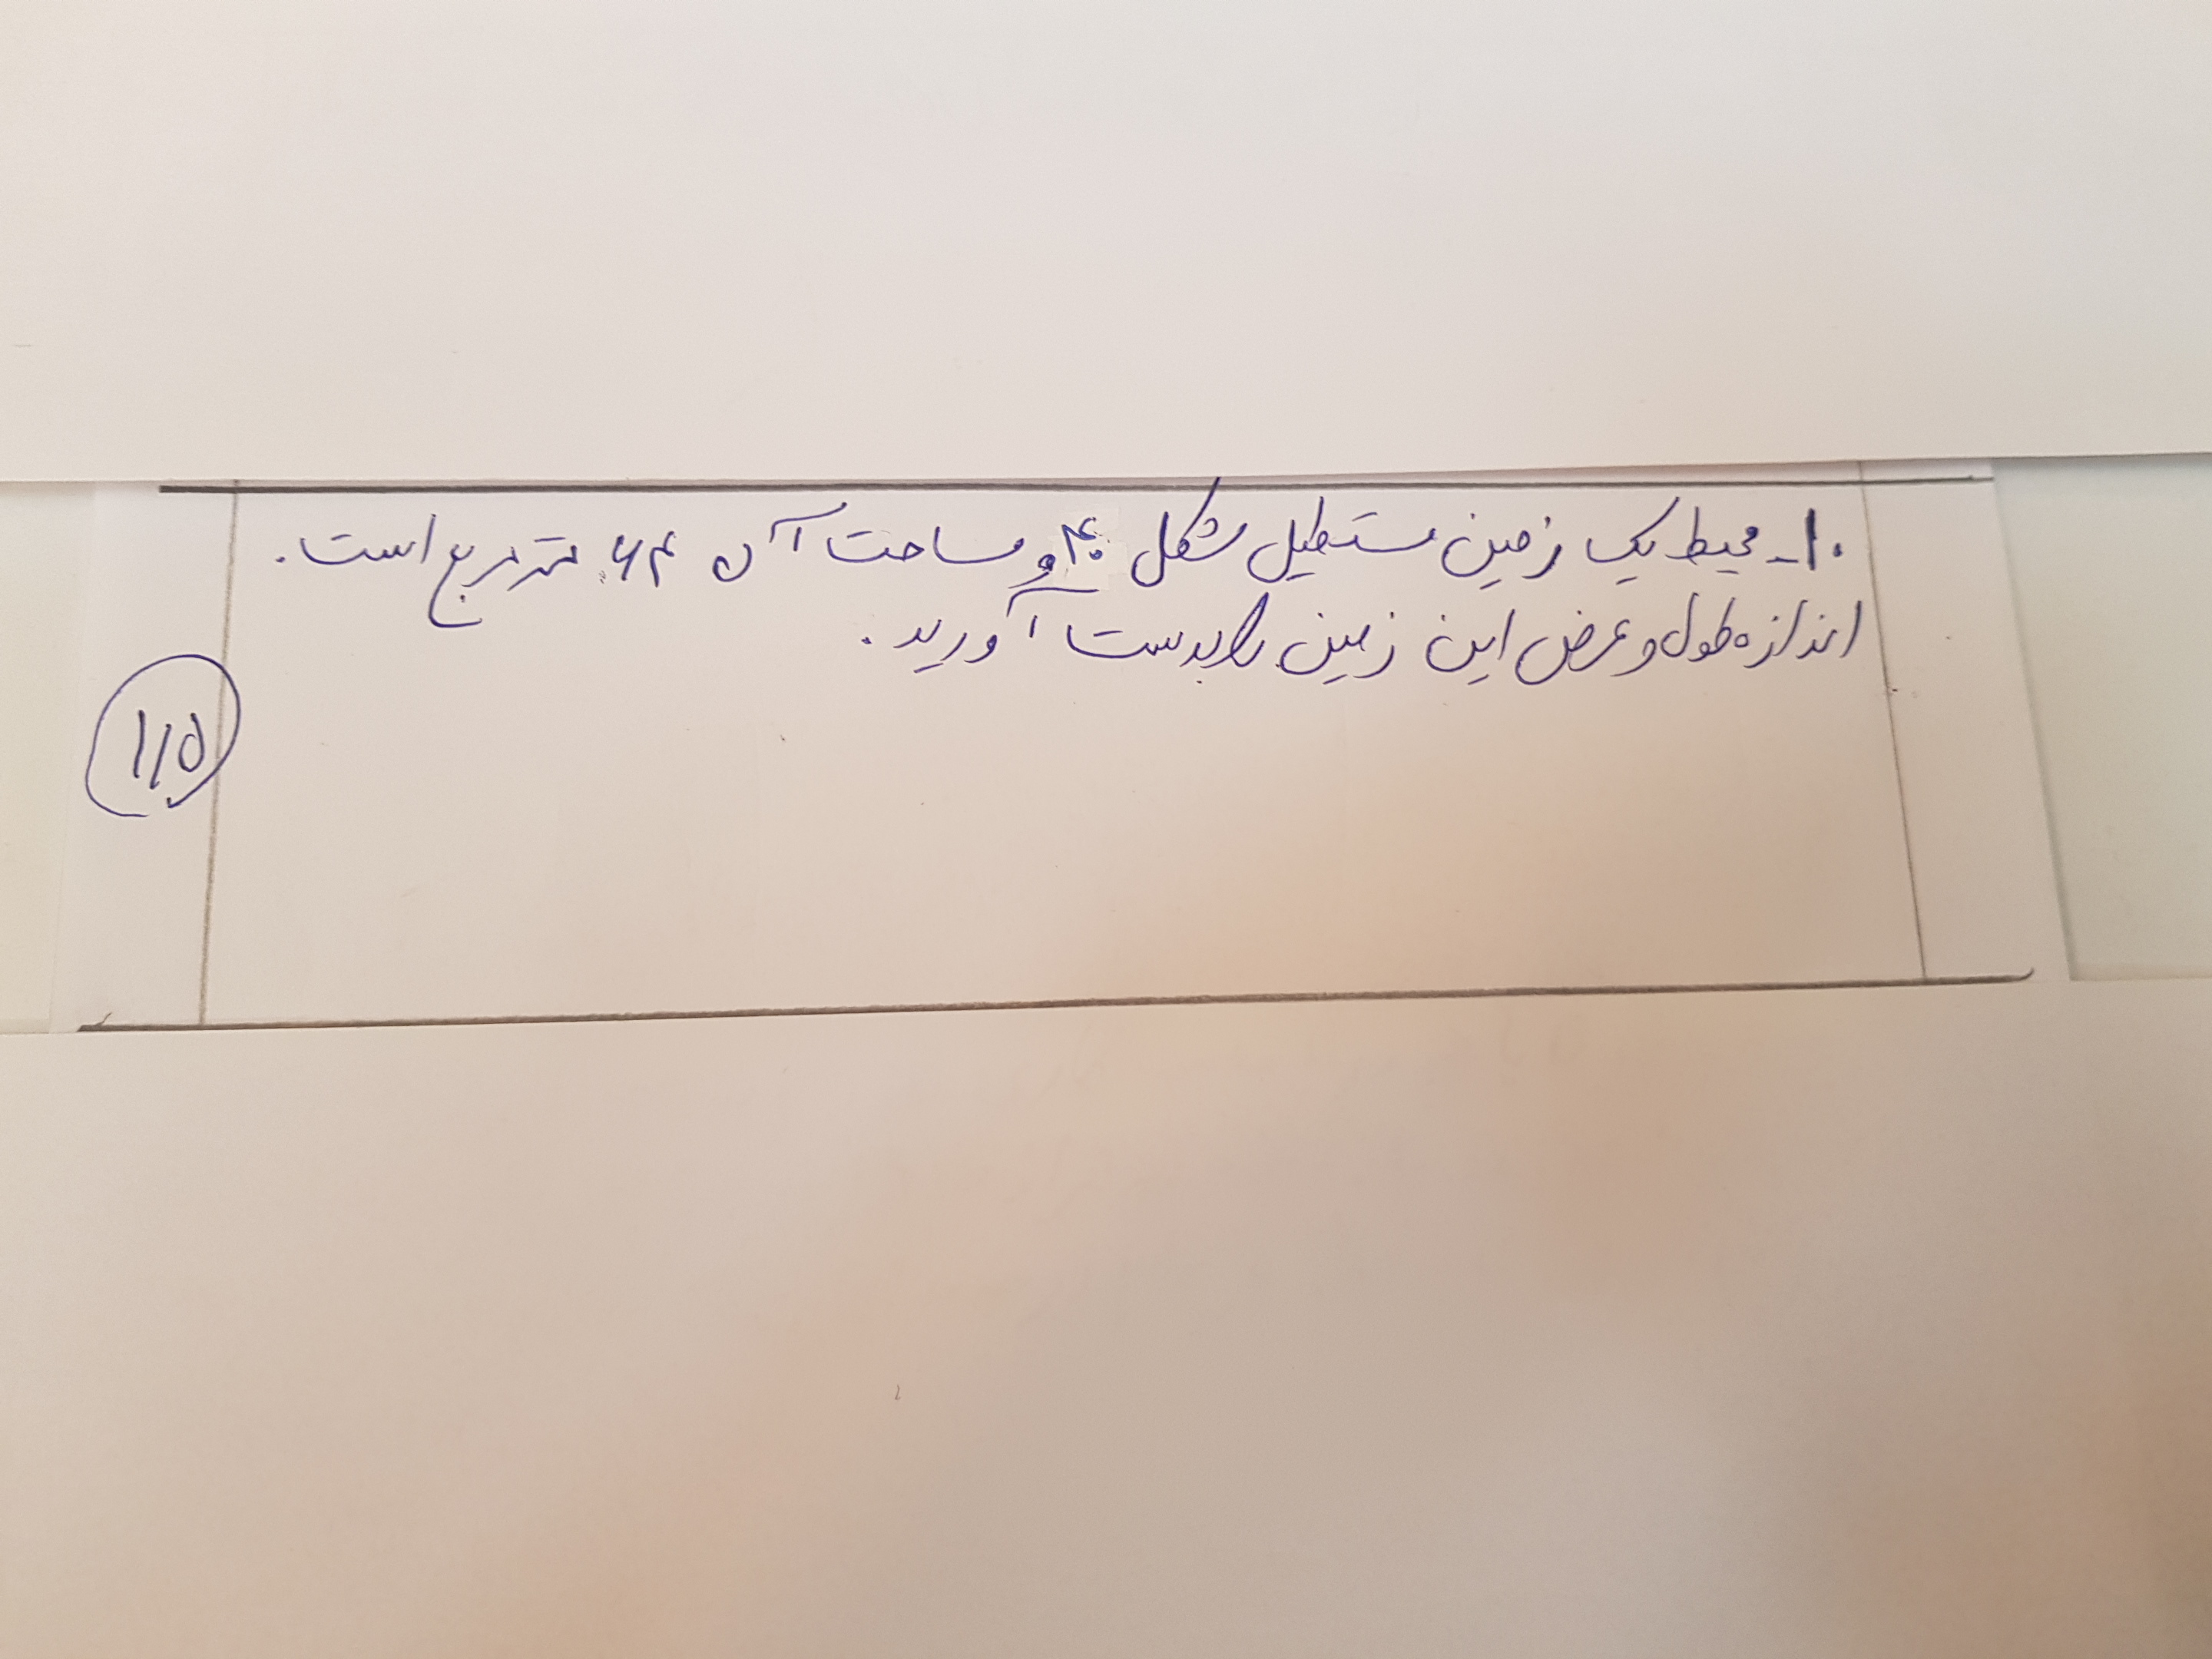 ۱۰- محیط یک زمین مستطیل شکل ۴۰ و مساحت آن ۶۴ مترمربع است.
اندازه طول و عرض این زمین را بدست آورید.
۱/۵